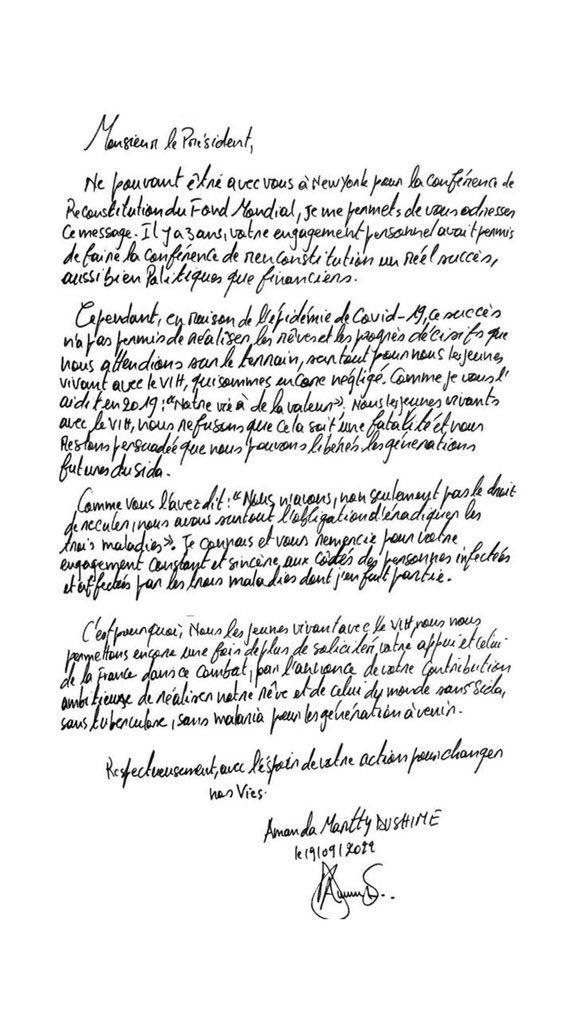 Monsieur le Président,
Ne pouvant être avec vous à New York pour la conférence de
Reconstitution du Fond Mondial, je me permets de vous adresser
ce message. Il y a 3 ans, votre engagement personnel avait permis
de faire la conférence de renconstitution un réel succès,
aussi bien Politiques que financiers.
Cependant, en raison de l'épidémie de Covid-19, ce succès
n'a pas permis de réaliser, les rêves et les progrès décisifs que
nous attendions sur le terrain, surtout pour nous les jeunes
vivant avec le VIH, qui sommes encore négligé. Comme je vous l'
ai dit en 2019 : "Notre vie à de la valeur". Nous les jeunes vivants
avec le VIH, nous refusons que cela soit une fatalité et nous
Restons persuadée que nous pouvons libérés les générations
futures du sida.
Comme vous l'avez dit : "Nous n'avons, non seulement pas le droit
de reculer, nous avons surtout l'obligation d'éradiquer les
trois maladies". Je connais et vous remercie pour votre
engagement constant et sincère, aux côtés des personnes infectées
et affectés par les trois maladies dont j'en fait partie.
C'est pourquoi, Nous les jeunes vivant avec le VIH, nous nous
permettons encore une fois de plus de soliciter, votre appui et celui
de la France dans ce combat, par l'annonce de votre contribution
ambitieuse de réaliser notre rêve et de celui du monde sans Sida,
sans tuberculose, sans malaria pour les génération à venir.
Respectueusement, avec l'espoir de votre action pour changer
nos Vies.
Amanda Martty DUSHIME
le 19/09/2022